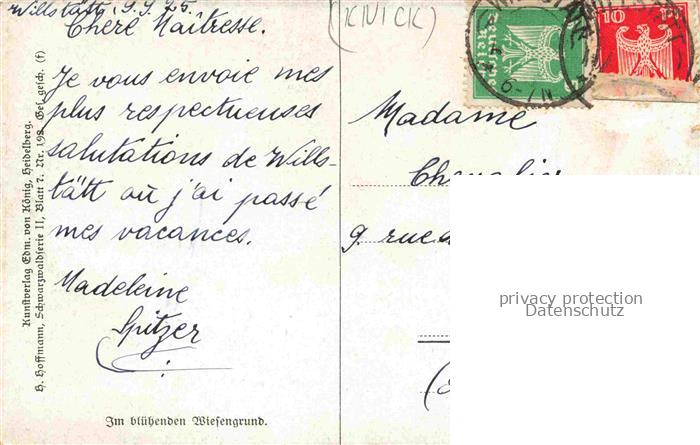 Willstätt, 9.9.25.
Chère Maîtresse.
Je vous envoie mes
plus respectueuses
salutations de Wills-
tätt où j'ai passé
mes vacances.
Madeleine
Spitzer
Im blühenden Wiesengrund.
Kunstverlag Edm. von König, Heidelberg.
H. Hoffmann, Schwarzwaldserie II, Blatt 7. Nr. 192. Ges. gesch. (f)
(KNICK)
10
Madame
Chevalier
9 rue d
privacy protection
Datenschutz